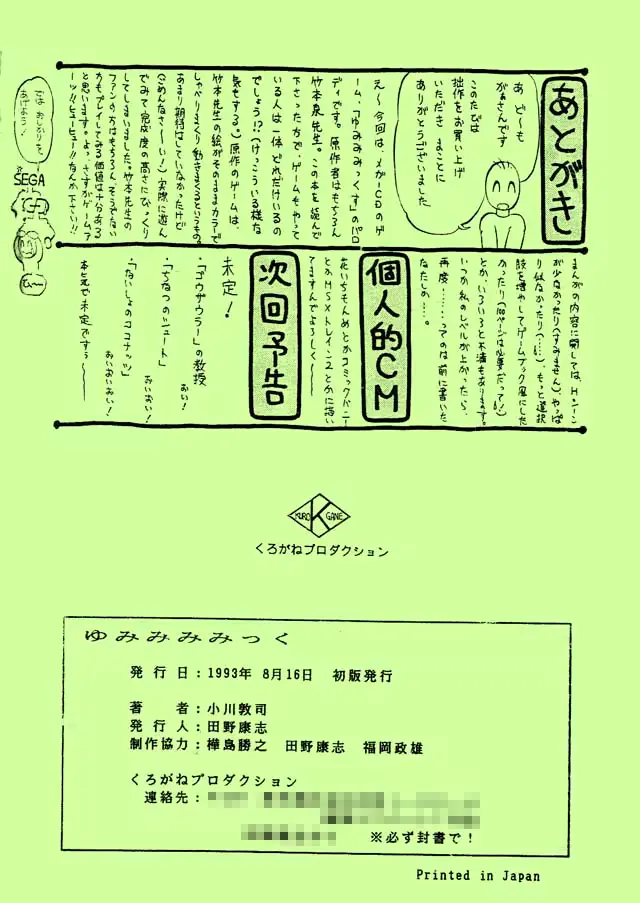 あとがき
あ ど〜も
がぁさんです
このたびは
拙作をお買い上げ
いただき まことに
ありがとうございました
え〜今回は、メガ-CDのゲ
ーム、「ゆみみみっくす」のパロ
ディです。原作者はもちろん
竹本泉先生。この本を読んで
下さった方で、ゲームをやって
いる人は一体どれだけいるの
でしょう!?(けっこういる様な
気もする?)原作のゲームは、
竹本先生の絵がそのままカラーで
しゃべりまくり動きまくるというもの。
あまり期待はしていなかったけど
(ごめんなさーい!)実際に遊ん
でみて完成度の高さにびっくり
してしまいました。竹本先生の
ファンの方はもちろん、そうでない
方もプレイしてみる価値は十分ある
と思います。よっ、さすがゲームア
ーツ!!ヒューヒュー!!なんか下さい!!
ではおしかりを
あげよう!
SEGA
まんがの内容に関しては、Hシーン
が少なかったり(すみません)、やっぱ
り似なかったり(……)、もっと選択
肢を増やしてゲームブック風にした
かったり(100ページは必要だって!)
とか、いろいろと不満もあります。
いつか私のレベルが上がったら、
再度………ってのは前に書いた
なたしか…。
個人的CM
花いちもんめとかコミックバニー
とかMSXトレイン2とかに描い
てますんでよろしく〜
次回予告
未定!
・「ゴウザウラー」の教授
おい!
・「ちなつのシュート」
おいおい!
・「ないしょのココナッツ」
おいおいおい!
本とにや未定ですぅ〜
KURO K GANE
くろがねプロダクション
ゆみみみみっく
発行日:1993年 8月16日 初版発行
著 者:小川敦司
発行人:田野康志
制作協力:樺島勝之 田野康志 福岡政雄
くろがねプロダクション
連絡先:
※必ず封書で!
Printed in Japan